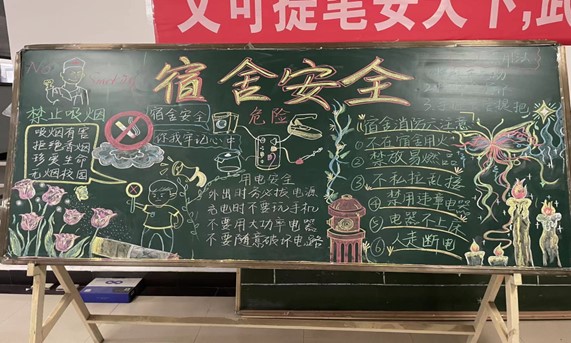 文可提笔安天下,武
宿舍安全
No smoking
禁止吸烟
吸烟有害
拒绝香烟
珍爱生命
无烟校园
宿舍安全
你我牢记心中
危险
用电安全
充电时不要玩手机
不要用大功率电器
宿舍消防六注意
①不在宿舍用火
②禁放易燃品
③不私拉乱接
④禁用违章电器
⑤电器不上床
⑥人走断电